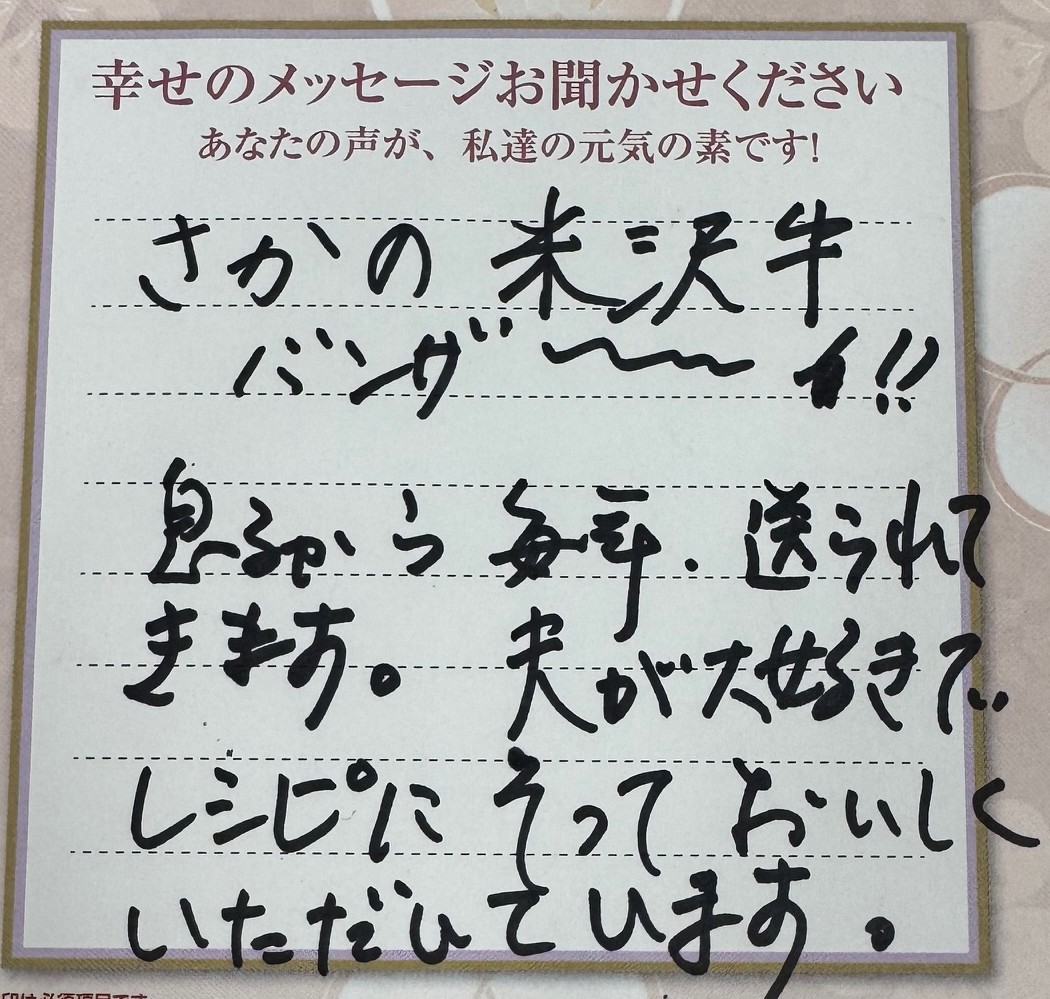 幸せのメッセージお聞かせください
あなたの声が、私達の元気の素です!
さかの 米沢牛
バンザ〜〜イ!!
息子から 毎年. 送られて
きます。 夫が大好きで
レシピに そって おいしく
いただいています。